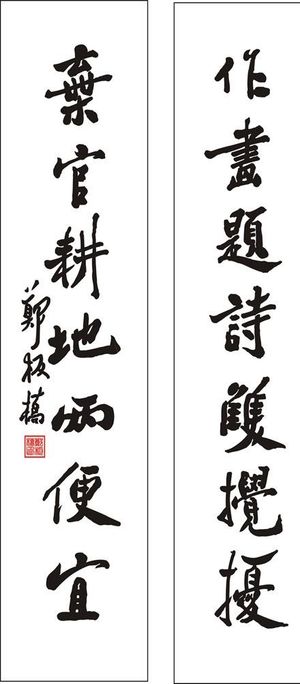 作畫題詩雙攪擾
棄官耕地兩便宜
鄭板橋